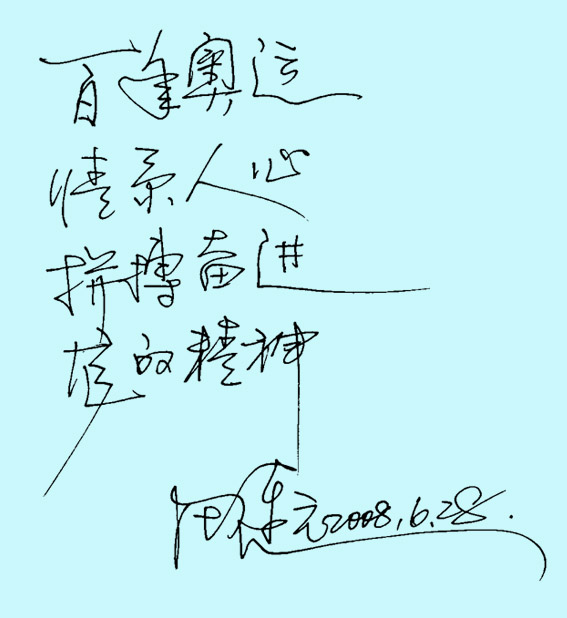 百年奥运
情系人心
拼搏奋进
的精神
2008.6.28.